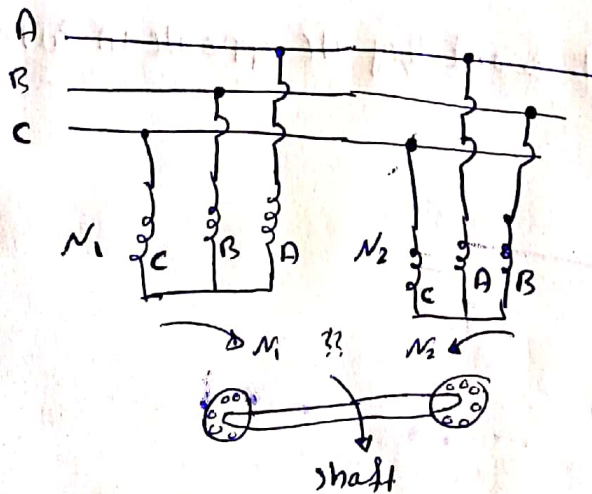 A
B
C
N1 C B A N2 C A B
N1 ?? N2
shaft